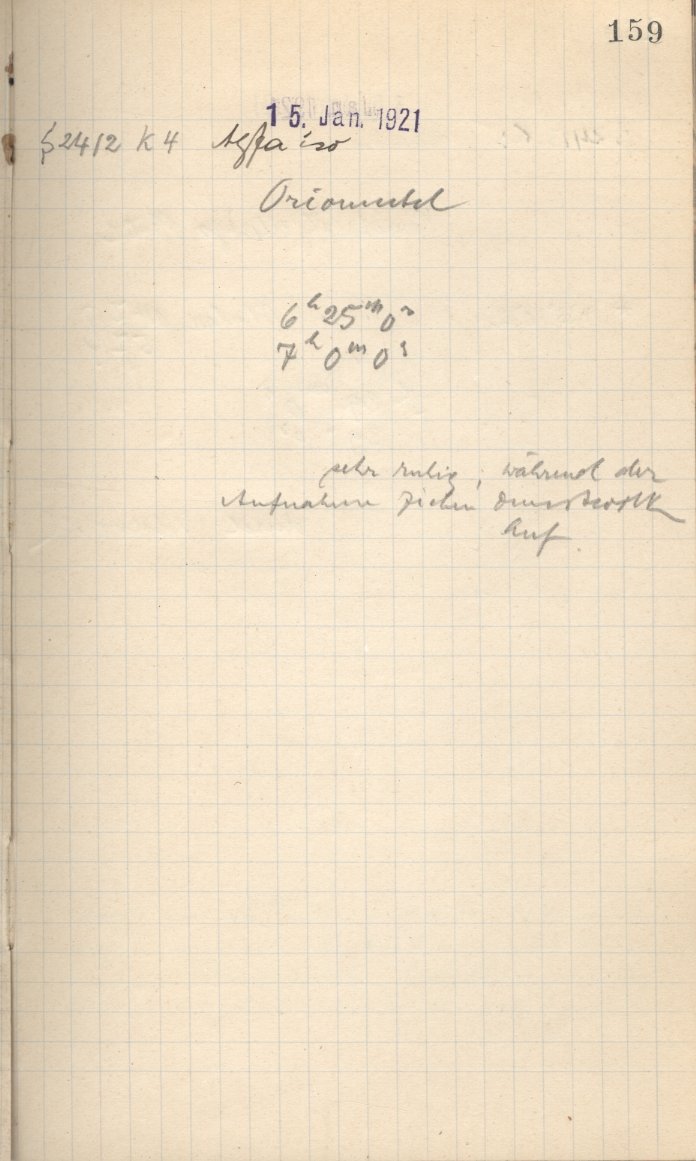 159
15. Jan. 1921
§ 2412 K 4 Agfa iso
Orionnebel
6h 25m 0s
7h 0m 0s
sehr ruhig, während der
Aufnahme ziehen
auf